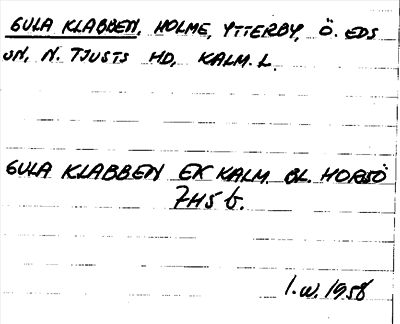 GULA KLABBEN, HOLME, YTTERBY, Ö. EDS
SN, N. TJUSTS HD, KALM. L.
GULA KLABBEN EK KALM. BL. HORSÖ
7H5 b.
I.W. 1958